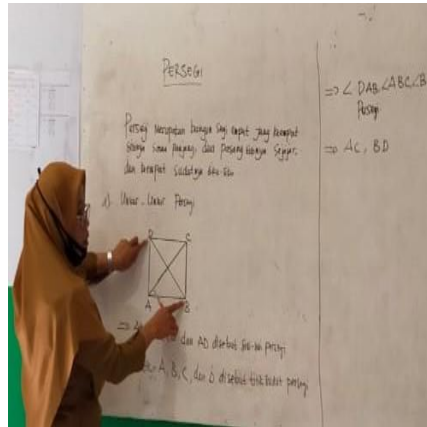 PERSEGI
Persegi merupakan bangun segi empat yang keempat
sisinya sama panjang, dua pasang sisinya sejajar,
dan keempat sudutnya siku-siku
1). Unsur-Unsur Persegi
D C
A B
=> dan AD disebut sisi-sisi persegi
A, B, C, dan D disebut titik sudut persegi
=> ∠DAB, ∠ABC, ∠B
Persegi
=> AC, BD